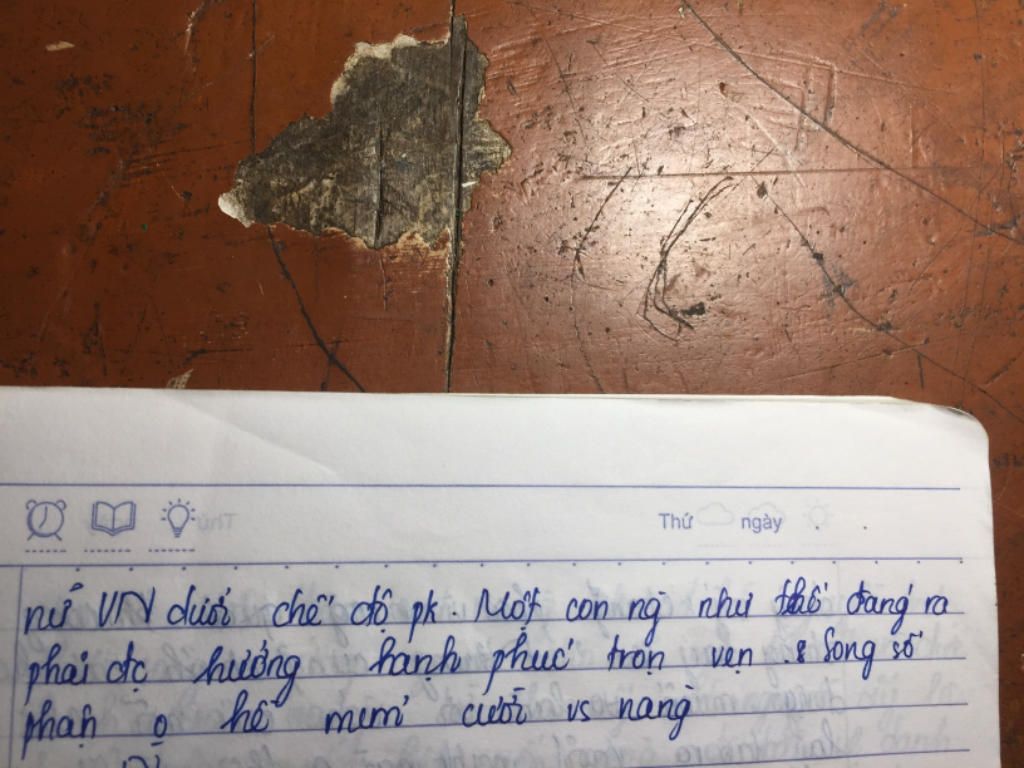 Thứ ngày
nữ VN dưới chế độ pk. Một con ng như thế đáng ra
phải đc hưởng hạnh phúc trọn vẹn. Song số
phận o hề mỉm cười vs nàng